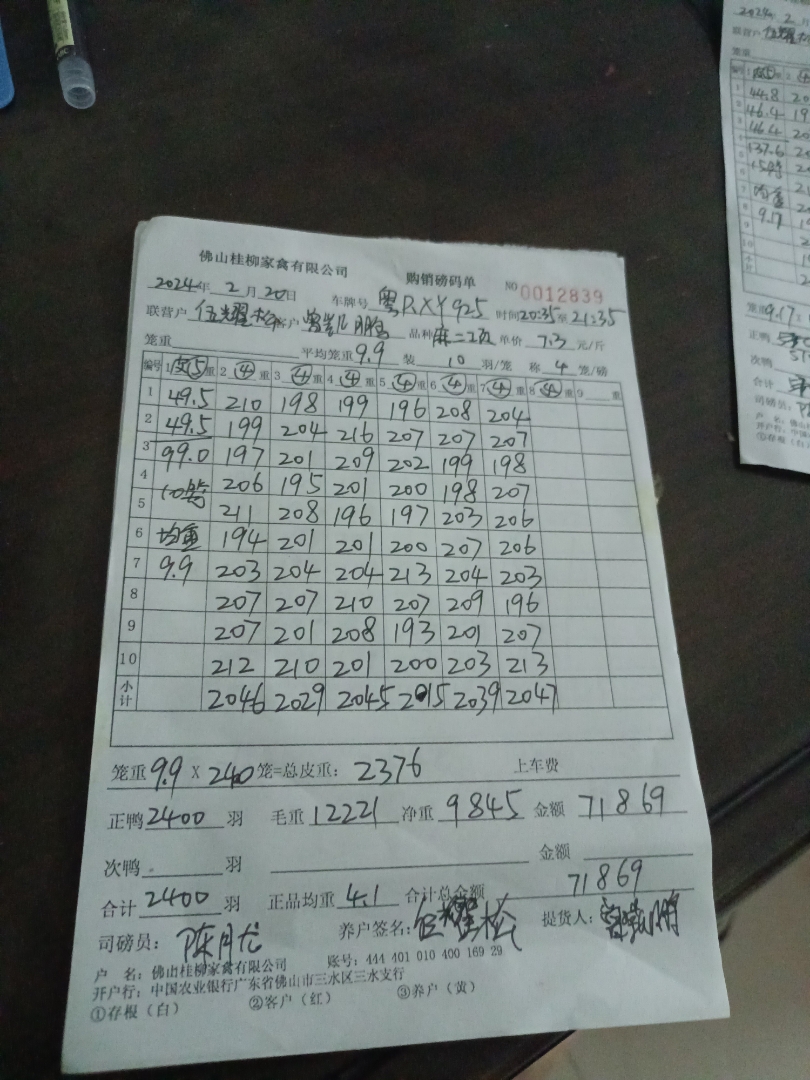 佛山桂柳家禽有限公司 购销磅码单 NO 0012839
2024年 2月 20日 车牌号 粤RXY925 时间20:35至21:35
联营户 伍耀松 客户 曾凯鹏 品种 麻二项 单价 7.3 元/斤
笼重 平均笼重 9.9 装 10 羽/笼 称 4 笼/磅
编号 1 皮⑤ 重 2 ④ 重 3 ④ 重 4 ④ 重 5 ④ 重 6 ④ 重 7 ④ 重 8 ④ 重 9 重
1 49.5 210 198 199 196 208 204
2 49.5 199 204 216 207 207 207
3 99.0 197 201 209 202 199 198
4 10笼 206 195 201 200 198 207
5 211 208 196 197 203 206
6 均重 194 201 201 200 207 206
7 9.9 203 204 204 213 204 203
8 207 207 210 207 209 196
9 207 201 208 193 201 207
10 212 210 201 200 203 213
小计 2046 2029 2045 2015 2039 2047
笼重 9.9 X 240 笼=总皮重: 2376 上车费
正鸭 2400 羽 毛重 12221 净重 9845 金额 71869
次鸭 羽 金额
合计 2400 羽 正品均重 4.1 合计总金额 71869
司磅员: 陈月龙 养户签名: 伍耀松 提货人: 曾凯鹏
户 名: 佛山桂柳家禽有限公司 账号: 444 401 010 400 169 29
开户行: 中国农业银行广东省佛山市三水区三水支行
①存根(白) ②客户(红) ③养户(黄)
2024 2
联营户 伍耀松
笼重
编号 1 皮⑤ ④
1 44.8
2 46.4
3 46.4
137.6
均重
9.17
笼重 9.17
正鸭
次鸭
合计
司磅员:
户 名:
开户行: 中国农
①存根(白)